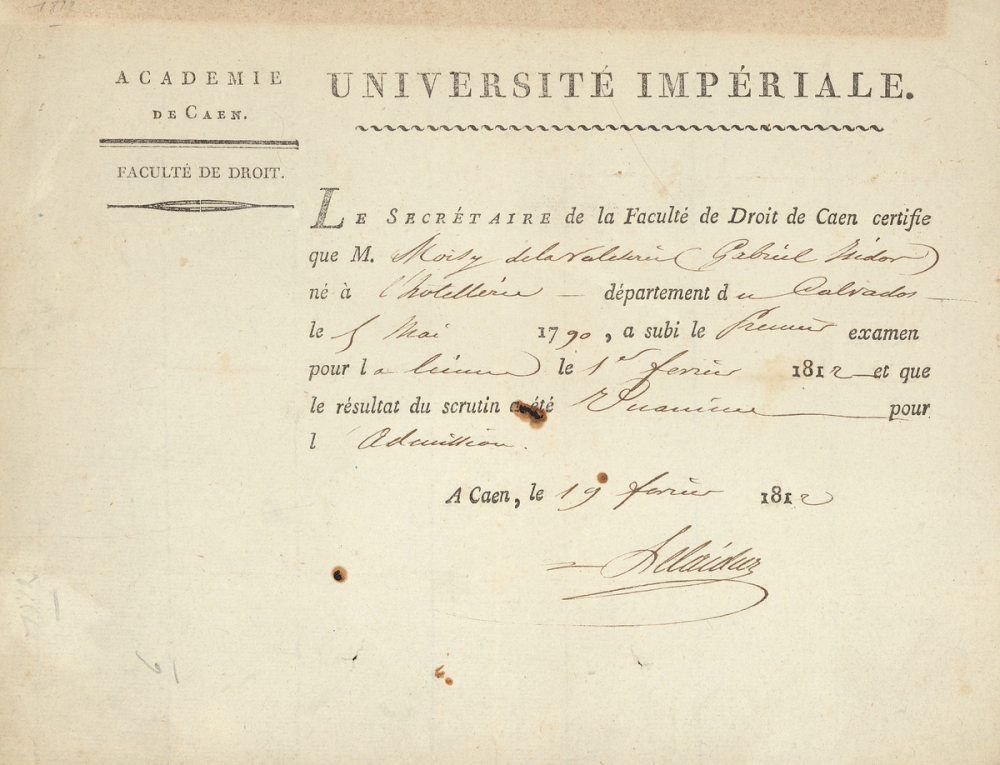 ACADEMIE
DE CAEN.
FACULTÉ DE DROIT.
UNIVERSITÉ IMPÉRIALE.
LE SECRÉTAIRE de la Faculté de Droit de Caen certifie
que M. Moisy delavaleterie (Gabriel Isidor)
né à l'hotellerie département du Calvados
le 5 Mai 1790, a subi le Premier examen
pour la licence le 1er fevrier 1812 et que
le résultat du scrutin a été Unanime pour
l'Admission.
A Caen, le 19 fevrier 1812